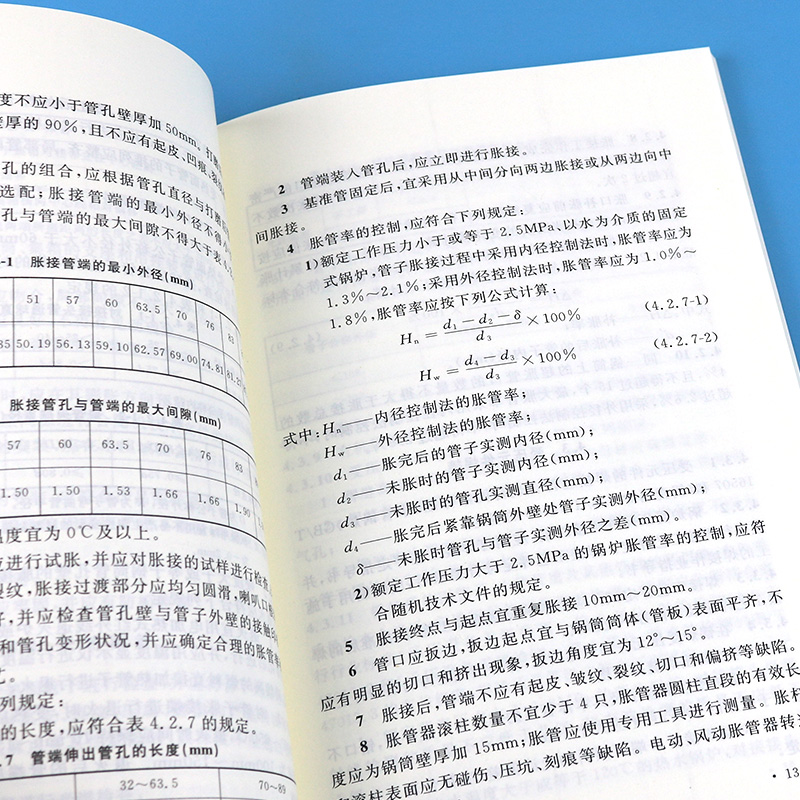 度不应小于管孔壁厚加50mm，打磨
壁厚的90%，且不应有起皮、凹痕、裂
孔的组合，应根据管孔直径与打磨
选配；胀接管端的最小外径不得小
孔与管端的最大间隙不得大于表4.
-1 胀接管端的最小外径(mm)
51 57 60 63.5 70 76 83
35 50.19 56.13 59.10 62.57 69.00 74.81 81.27
胀接管孔与管端的最大间隙(mm)
57 60 63.5 70 76 83
1.50 1.50 1.53 1.66 1.66 1.90
温度宜为0℃及以上。
应进行试胀，并应对胀接的试样进行检查
裂纹，胀接过渡部分应均匀圆滑，喇叭口根
好，并应检查管孔壁与管子外壁的接触
和管孔变形状况，并应确定合理的胀管率
列规定：
的长度，应符合表4.2.7的规定。
.7 管端伸出管孔的长度(mm)
32～63.5 70～89
2 管端装入管孔后，应立即进行胀接。
3 基准管固定后，宜采用从中间分向两边胀接或从两边向中
间胀接。
4 胀管率的控制，应符合下列规定：
1)额定工作压力小于或等于2.5MPa、以水为介质的固定
式锅炉，管子胀接过程中采用内径控制法时，胀管率应为
1.3%～2.1%；采用外径控制法时，胀管率应为1.0%～
1.8%，胀管率应按下列公式计算：
Hₙ = (d₁－d₂－δ)/d₃ ×100% (4.2.7-1)
H_w = (d₄－d₃)/d₃ ×100% (4.2.7-2)
式中：Hₙ——内径控制法的胀管率；
H_w——外径控制法的胀管率；
d₁——胀完后的管子实测内径(mm)；
d₂——未胀时的管子实测内径(mm)；
d₃——未胀时的管孔实测直径(mm)；
d₄——胀完后紧靠锅筒外壁处管子实测外径(mm)；
δ——未胀时管孔与管子实测外径之差(mm)。
2)额定工作压力大于2.5MPa的锅炉胀管率的控制，应符
合随机技术文件的规定。
5 胀接终点与起点宜重复胀接10mm～20mm。
6 管口应扳边，扳边起点宜与锅筒筒体(管板)表面平齐，不
应有明显的切口和挤出现象，扳边角度宜为12°～15°。
7 胀接后，管端不应有起皮、皱纹、裂纹、切口和偏挤等缺陷。
8 胀管器滚柱数量不宜少于4只，胀管器圆柱直段的有效长
度应为锅筒壁厚加15mm；胀管应使用专用工具进行测量。胀杆
滚柱表面应无碰伤、压坑、刻痕等缺陷。电动、风动胀管器转
· 13